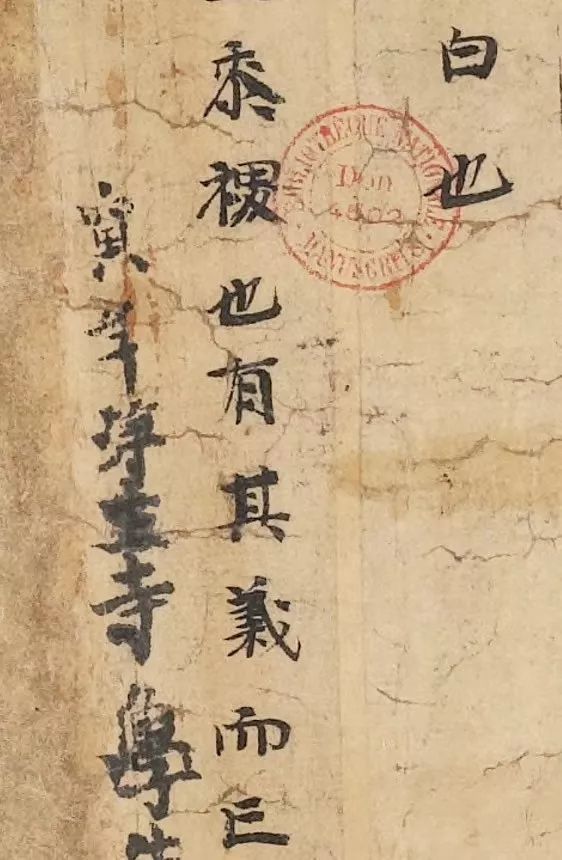 白也
黍稷也有其義而亡
寅年淨土寺學
BIBLIOTHÈQUE NATIONALE
DON
4502
MANUSCRITS